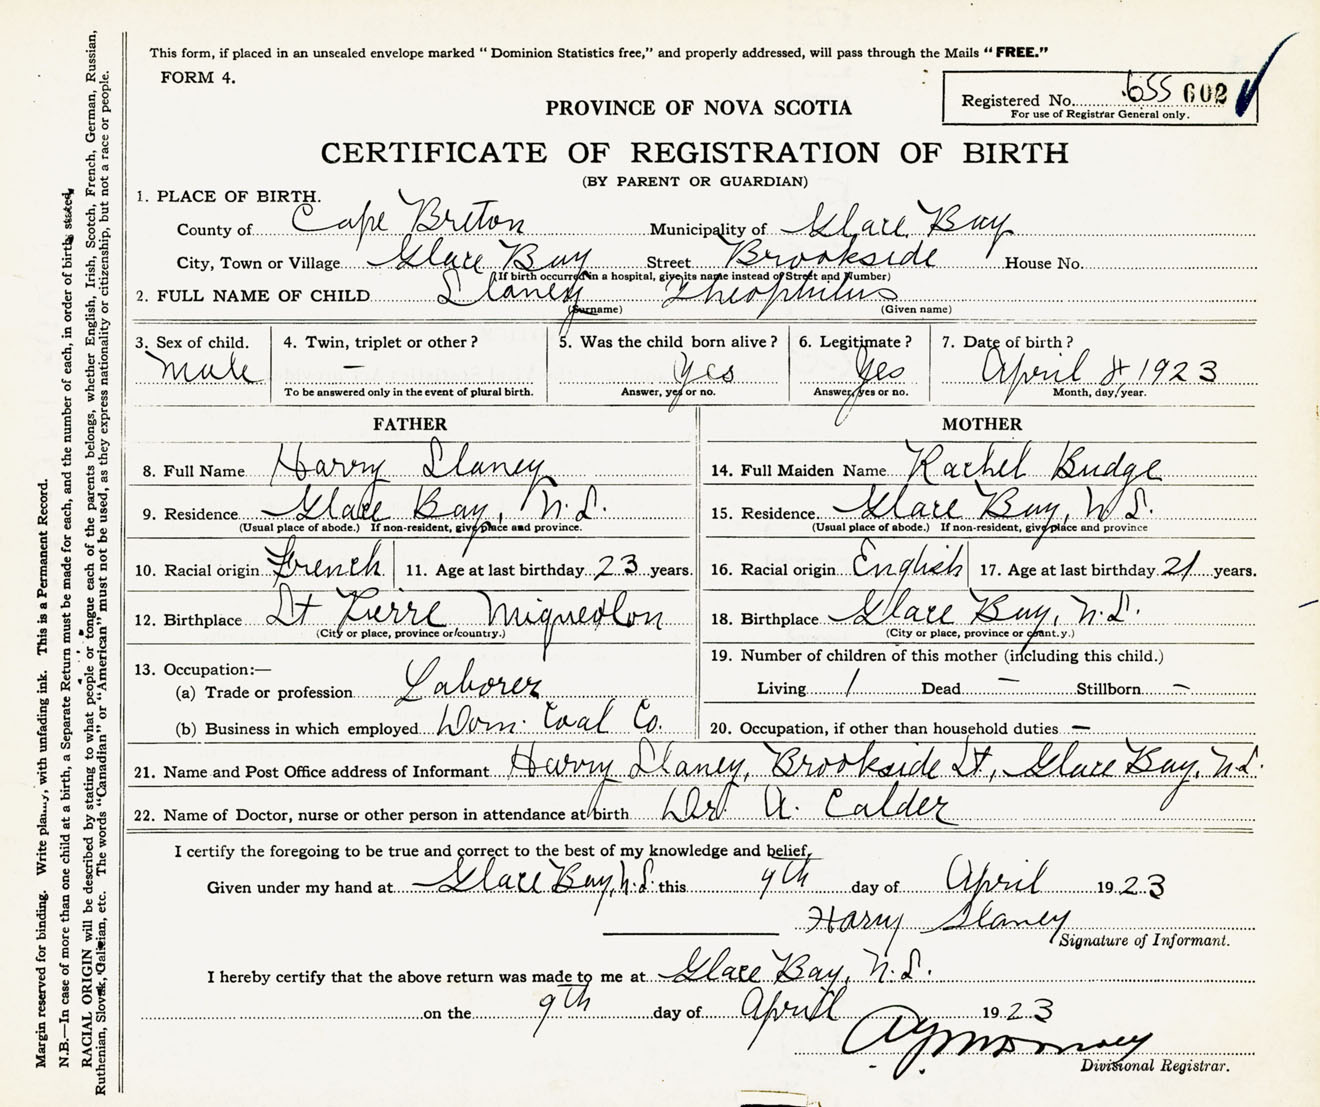 This form, if placed in an unsealed envelope marked “Dominion Statistics free,” and properly addressed, will pass through the Mails “FREE.”
FORM 4.
Registered No. 655 602
For use of Registrar General only.
PROVINCE OF NOVA SCOTIA
CERTIFICATE OF REGISTRATION OF BIRTH
(BY PARENT OR GUARDIAN)
1. PLACE OF BIRTH.
County of Cape Breton Municipality of Glace Bay
City, Town or Village Glace Bay Street Brookside House No.
(If birth occurred in a hospital, give its name instead of Street and Number)
2. FULL NAME OF CHILD Slaney Theophilus
(Surname) (Given name)
3. Sex of child. 4. Twin, triplet or other? 5. Was the child born alive? 6. Legitimate? 7. Date of birth?
Male — Yes Yes April 8, 1923
To be answered only in the event of plural birth. Answer, yes or no. Answer, yes or no. Month, day, year.
FATHER MOTHER
8. Full Name Harry Slaney 14. Full Maiden Name Rachel Budge
9. Residence Glace Bay, N.S. 15. Residence Glace Bay, N.S.
(Usual place of abode.) If non-resident, give place and province. (Usual place of abode.) If non-resident, give place and province
10. Racial origin French 11. Age at last birthday 23 years. 16. Racial origin English 17. Age at last birthday 21 years.
12. Birthplace St Pierre Miquelon 18. Birthplace Glace Bay, N.S.
(City or place, province or country.) (City or place, province or count.y.)
13. Occupation:— 19. Number of children of this mother (including this child.)
(a) Trade or profession Laborer Living 1 Dead — Stillborn —
(b) Business in which employed Dom. Coal Co. 20. Occupation, if other than household duties —
21. Name and Post Office address of Informant Harry Slaney, Brookside St, Glace Bay, N.S.
22. Name of Doctor, nurse or other person in attendance at birth Dr. A. Calder
I certify the foregoing to be true and correct to the best of my knowledge and belief.
Given under my hand at Glace Bay, N.S. this 9th day of April 1923
Harry Slaney
Signature of Informant.
I hereby certify that the above return was made to me at Glace Bay, N.S.
on the 9th day of April 1923
Divisional Registrar.
Margin reserved for binding. Write plainly, with unfading ink. This is a Permanent Record.
N.B.—In case of more than one child at a birth, a Separate Return must be made for each, and the number of each, in order of birth, stated.
RACIAL ORIGIN will be described by stating to what people or tongue each of the parents belongs, whether English, Irish, Scotch, French, German, Russian,
Ruthenian, Slovak, Galician, etc. The words “Canadian” or “American” must not be used, as they express nationality or citizenship, but not a race or people.